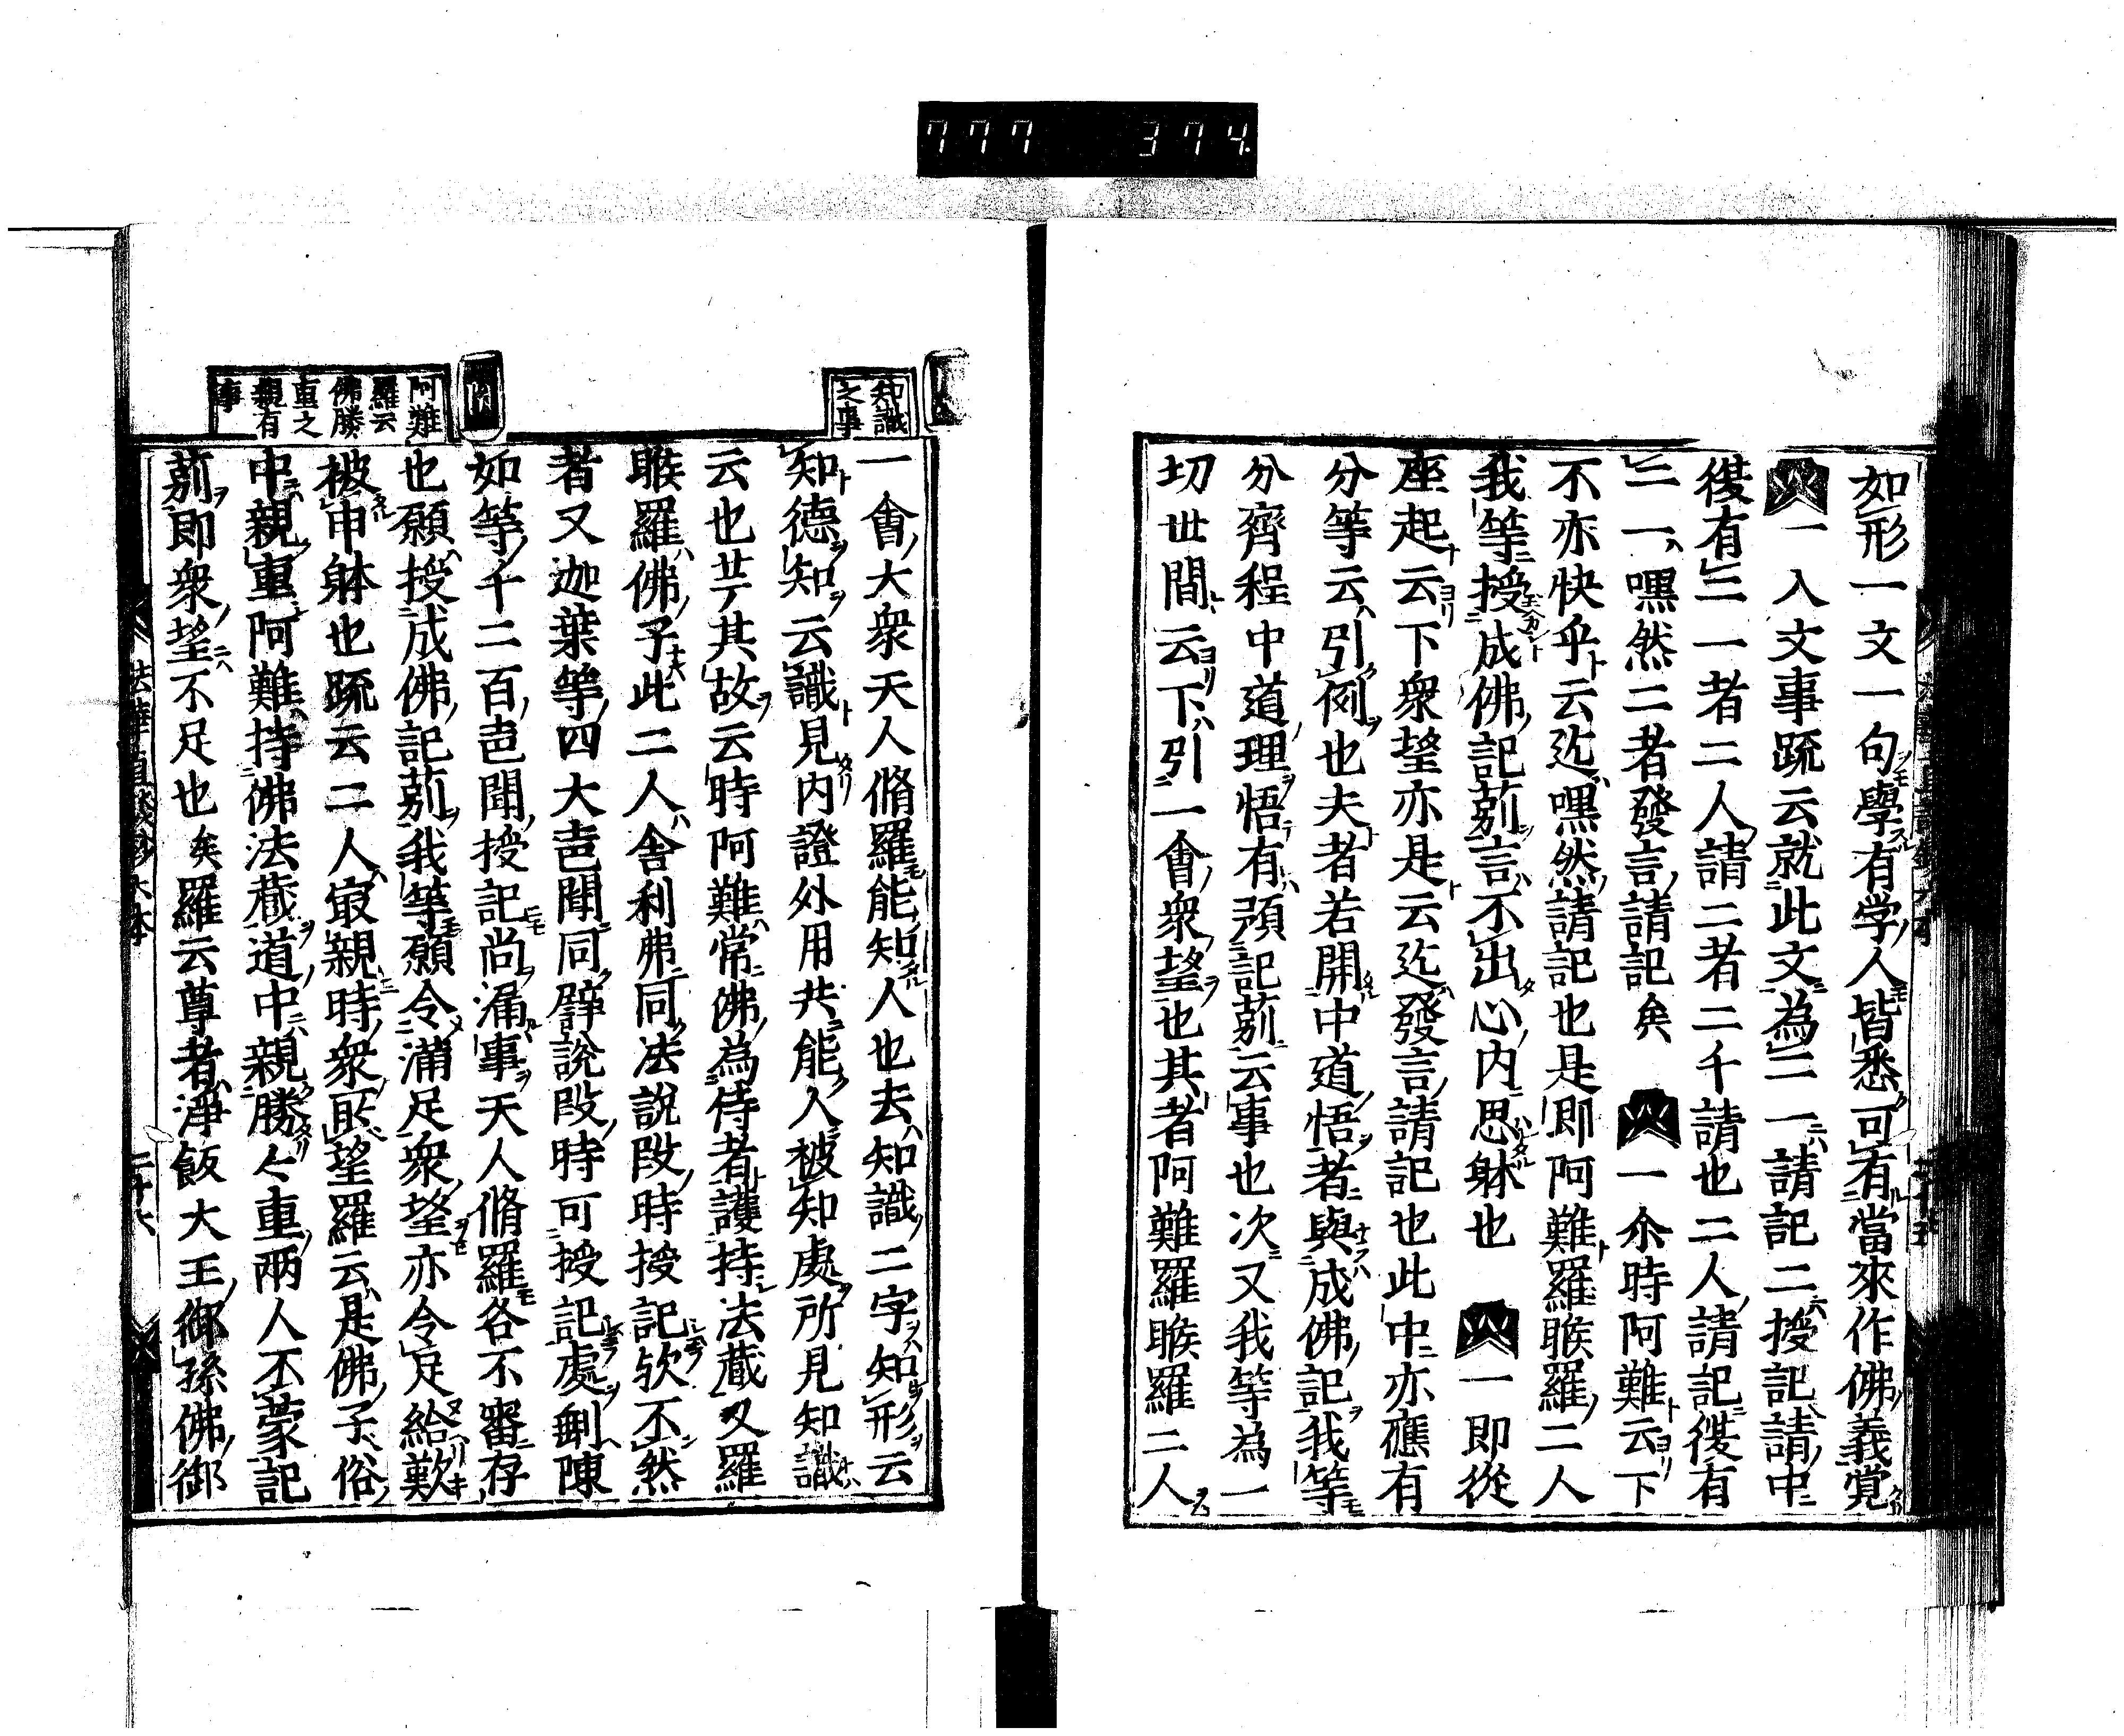 777 374
如形一文一句學有学人皆悉可有當來作佛義覚
一入文事䟽云就此文為二一請記二授記請中
復有二一者二人請二者二千請也二人請記復有
二一嘿然二者發言請記矣 一尒時阿難云下
不亦快乎云迄嘿然請記也是即阿難羅睺羅二人
我等授成佛記莂言不出心内思躰也 一即從
座起云下衆望亦是云迄發言請記也此中亦應有
分等云引例也夫者若開中道悟者與成佛記我等
分齊程中道理悟有預記莂云事也次又我等為一
切世間云下引一會衆望也其者阿難羅睺羅二人
知識之事
一會大衆天人脩羅能知人也去知識二字知形云
知德知云識見内證外用共能人被知處所見知識
云也廿丁其故云時阿難常佛為侍者護持法藏又羅
睺羅佛子此二人舎利弗同法説段時授記欤不然
者又迦葉等四大声聞同譬説段時可授記處剰陳
如等千二百声聞授記尚漏事天人脩羅各不審存
也願授成佛記莂我等願令滿足衆望亦令足給歎
被申躰也䟽云二人㝡親時衆所望羅云是佛子俗
中親重阿難持佛法蔵道中親勝々重兩人不蒙記
莂即衆望不足也矣羅云尊者浄飯大王御孫佛御
阿難
羅云
佛勝
重之
親有
事